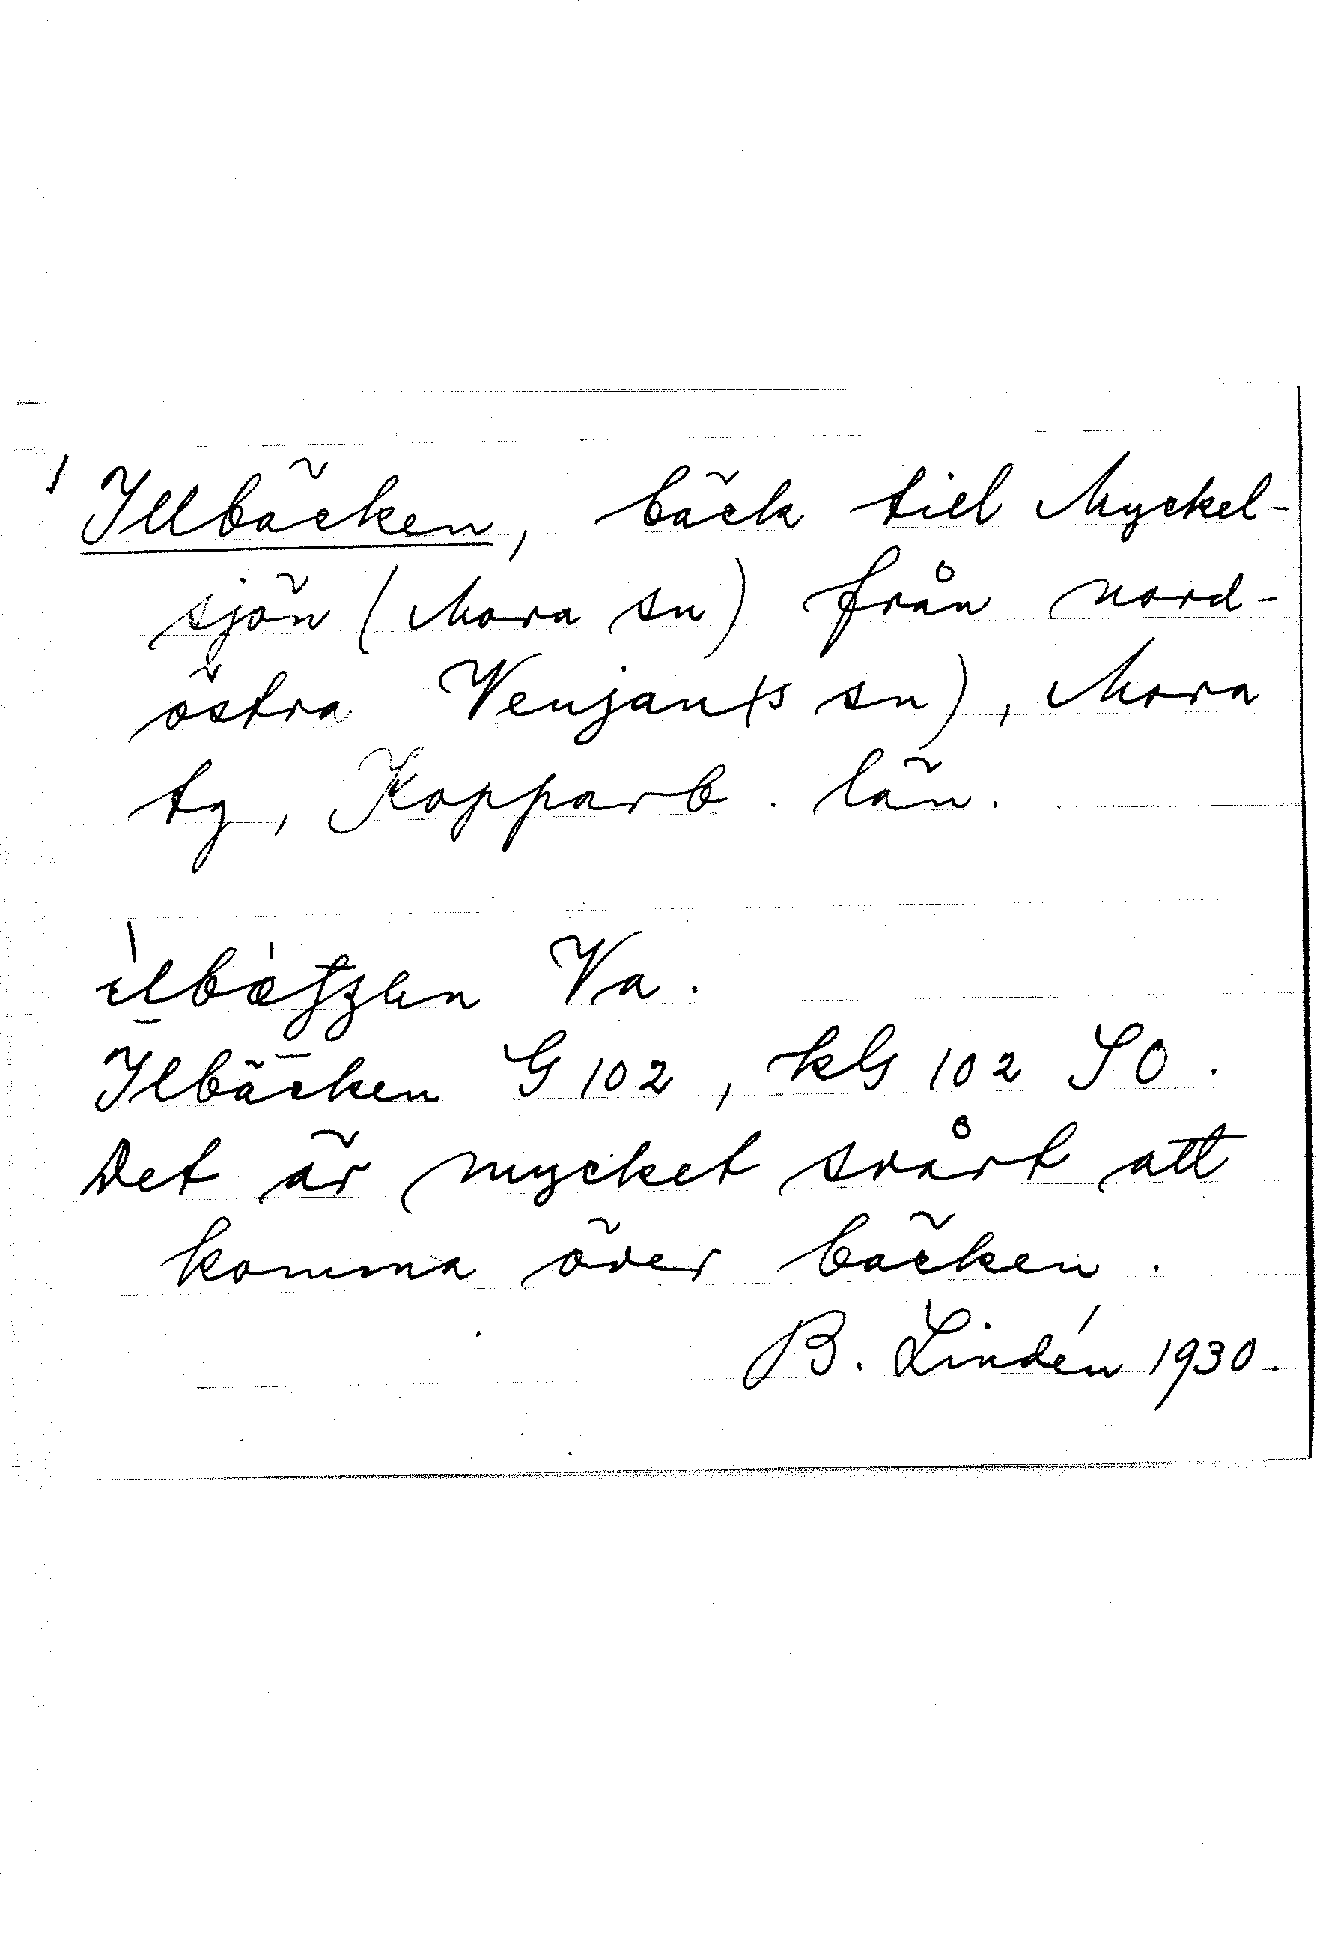 Illbäcken, bäck till Myckel-
sjön (Mora sn) från nord-
östra Venjan(s sn), Mora
tg, Kopparb. län.
Va.
Ilbäcken G 102, kG 102 SO.
Det är mycket svårt att
komma över bäcken.
B. Lindén 1930.